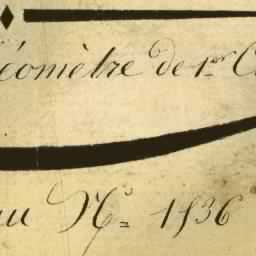 éomètre de 1er C
au N° 1836